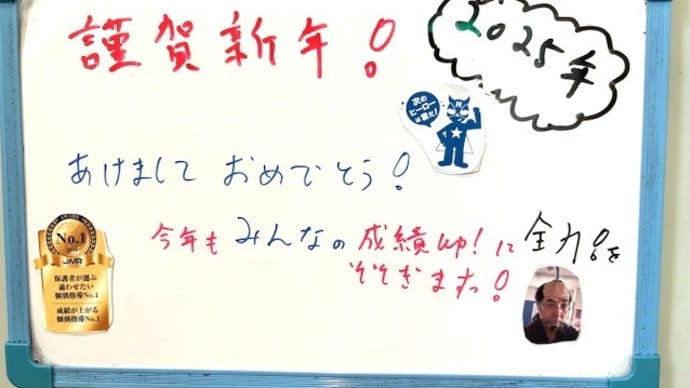 謹賀新年!
2025年
次の
ヒーロー
は君だ!
あけましておめでとう!
今年もみんなの成績up!に全力!を
そそぎます!
No.1
JMR
保護者が選ぶ
通わせたい
個別指導No.1
成績が上がる
個別指導No.1